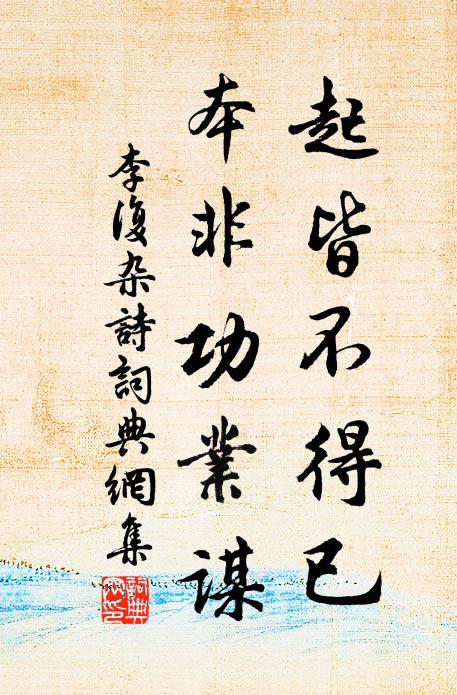 起皆不得已
本非功業謀
李復杂詩詞典網集